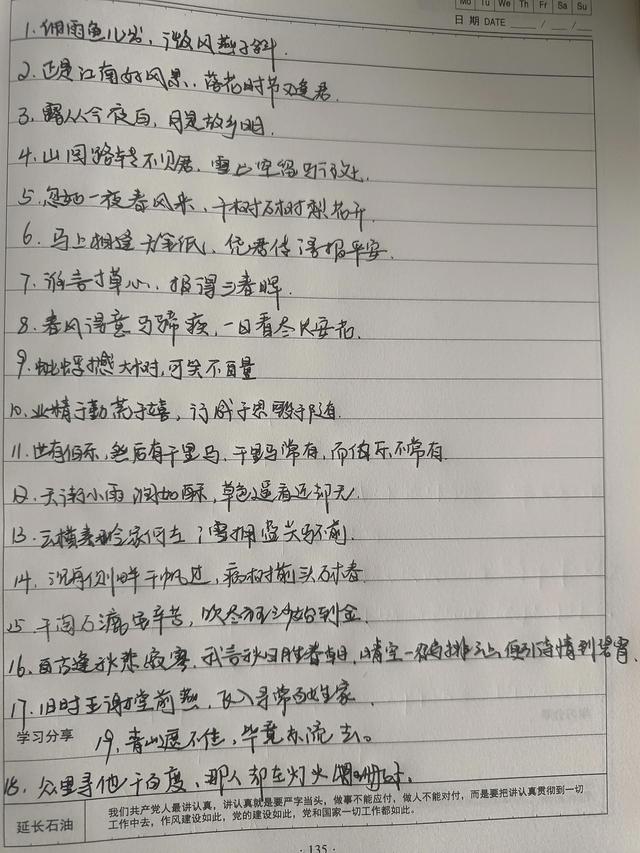 Mo Tu We Th Fr Sa Su
日期 DATE
1. 细雨鱼儿出，微风燕子斜.
2. 正是江南好风景，落花时节又逢君.
3. 露从今夜白，月是故乡明.
4. 山回路转不见君，雪上空留马行处.
5. 忽如一夜春风来，千树万树梨花开
6. 马上相逢无纸，凭君传语报平安.
7. 谁言寸草心，报得三春晖.
8. 春风得意马蹄疾，一日看尽长安花.
9. 蚍蜉撼大树，可笑不自量
10. 业精于勤荒于嬉，行成于思毁于随.
11. 世有伯乐，然后有千里马，千里马常有，而伯乐不常有.
12. 天街小雨润如酥，草色遥看近却无.
13. 云横秦岭家何在 雪拥蓝关马不前.
14. 沉舟侧畔千帆过，病树前头万木春.
15 千淘万漉虽辛苦，吹尽狂沙始到金.
16. 自古逢秋悲寂寥，我言秋日胜春朝，晴空一鹤排云上，便引诗情到碧霄.
17. 旧时王谢堂前燕，飞入寻常百姓家.
学习分享
19. 青山遮不住，毕竟东流去。
18. 众里寻他千百度，那人却在灯火阑珊处.
延长石油
我们共产党人最讲认真，讲认真就是要严字当头，做事不能应付，做人不能对付，而是要把讲认真贯彻到一切
工作中去，作风建设如此，党的建设如此，党和国家一切工作都如此。
· 135 ·